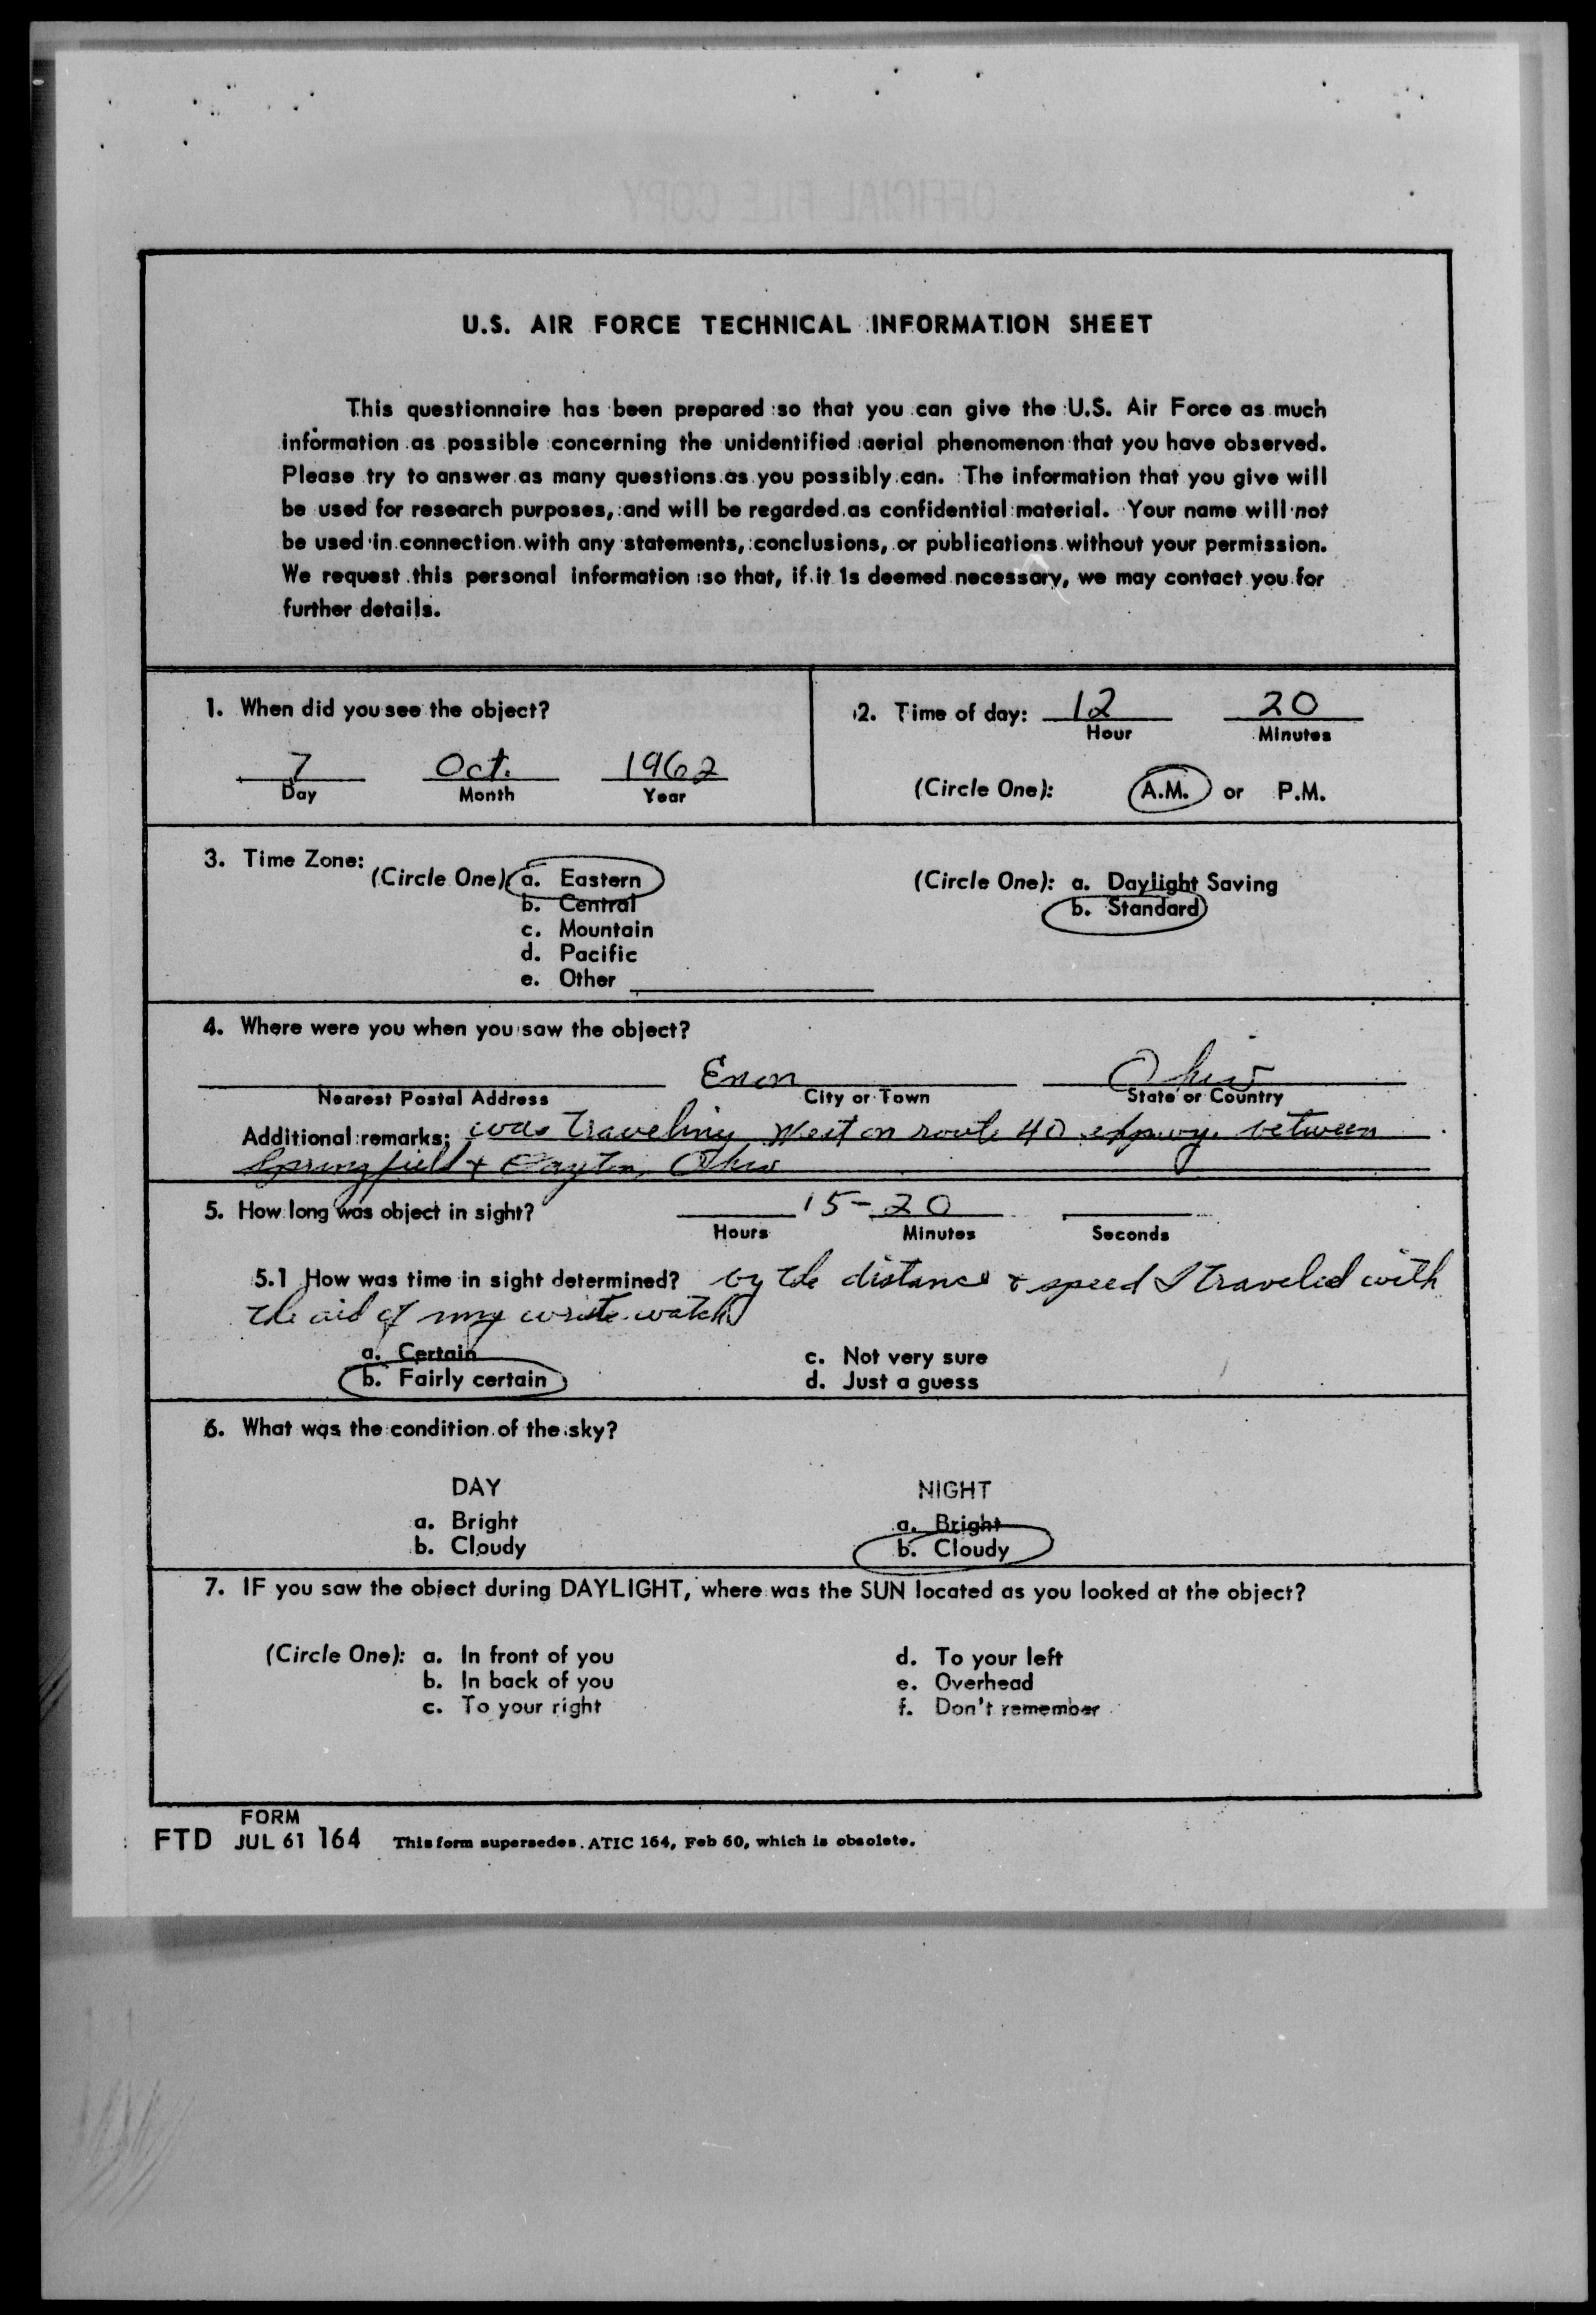 OFFICIAL FILE COPY
U.S. AIR FORCE TECHNICAL INFORMATION SHEET
This questionnaire has been prepared so that you can give the U.S. Air Force as much
information as possible concerning the unidentified aerial phenomenon that you have observed.
Please try to answer as many questions as you possibly can. The information that you give will
be used for research purposes, and will be regarded as confidential material. Your name will not
be used in connection with any statements, conclusions, or publications without your permission.
We request this personal information so that, if it is deemed necessary, we may contact you for
further details.
1. When did you see the object?
7 Oct. 1962
Day Month Year
2. Time of day: 12 20
Hour Minutes
(Circle One): A.M. or P.M.
3. Time Zone:
(Circle One): a. Eastern
b. Central
c. Mountain
d. Pacific
e. Other
(Circle One): a. Daylight Saving
b. Standard
4. Where were you when you saw the object?
Enon Ohio
Nearest Postal Address City or Town State or Country
Additional remarks: was traveling West on route 40 expwy. between
Springfield & Dayton, Ohio
5. How long was object in sight? 15-20
Hours Minutes Seconds
5.1 How was time in sight determined? by the distance & speed I traveled with
the aid of my wriste watch
a. Certain
b. Fairly certain
c. Not very sure
d. Just a guess
6. What was the condition of the sky?
DAY
a. Bright
b. Cloudy
NIGHT
a. Bright
b. Cloudy
7. IF you saw the object during DAYLIGHT, where was the SUN located as you looked at the object?
(Circle One): a. In front of you
b. In back of you
c. To your right
d. To your left
e. Overhead
f. Don't remember
FORM
FTD JUL 61 164 This form supersedes ATIC 164, Feb 60, which is obsolete.